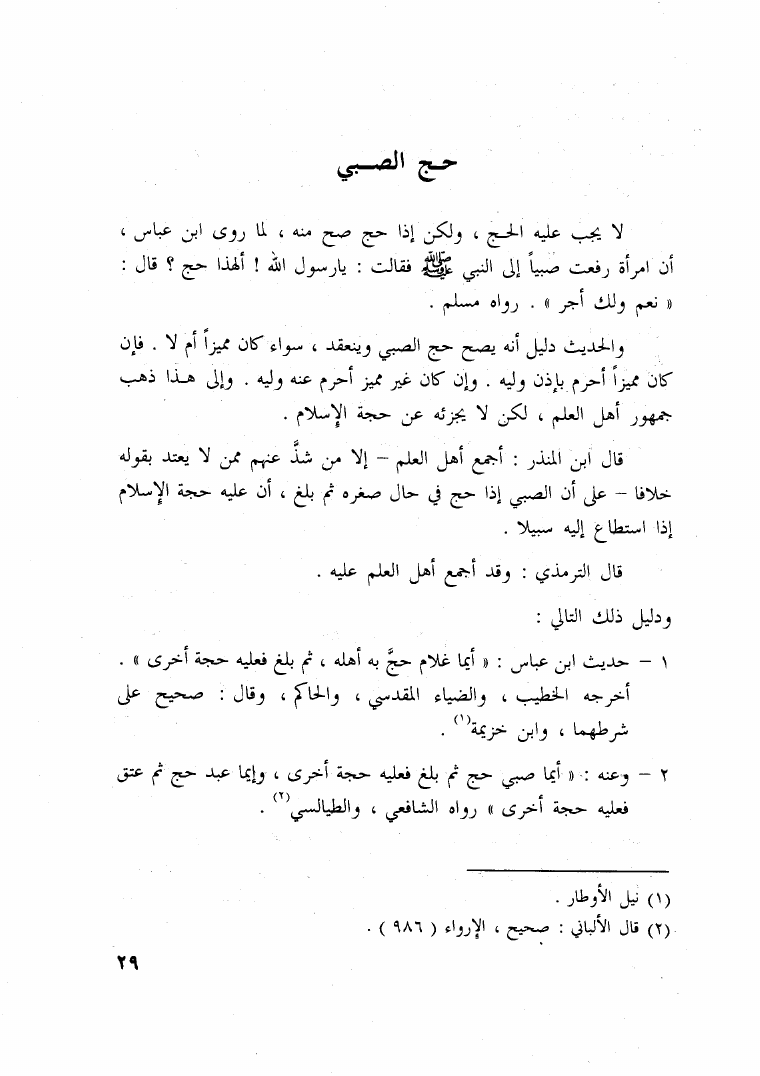 حج الصبي
لا يجب عليه الحج ، ولكن إذا حج صح منه ، لما روى ابن عباس ،
أن امرأة رفعت صبياً إلى النبي ﷺ فقالت : يارسول الله ! ألهذا حج ؟ قال :
« نعم ولك أجر » . رواه مسلم .
والحديث دليل أنه يصح حج الصبي وينعقد ، سواء كان مميزاً أم لا . فإن
كان مميزاً أحرم بإذن وليه . وإن كان غير مميز أحرم عنه وليه . وإلى هذا ذهب
جمهور أهل العلم ، لكن لا يجزئه عن حجة الإسلام .
قال ابن المنذر : أجمع أهل العلم – إلا من شذَّ عنهم ممن لا يعتد بقوله
خلافا – على أن الصبي إذا حج في حال صغره ثم بلغ ، أن عليه حجة الإسلام
إذا استطاع إليه سبيلا .
قال الترمذي : وقد أجمع أهل العلم عليه .
ودليل ذلك التالي :
١ – حديث ابن عباس : « أيما غلام حجَّ به أهله ، ثم بلغ فعليه حجة أخرى » .
أخرجه الخطيب ، والضياء المقدسي ، والحاكم ، وقال : صحيح على
شرطهما ، وابن خزيمة(١) .
٢ – وعنه : « أيما صبي حج ثم بلغ فعليه حجة أخرى ، وإيما عبد حج ثم عتق
فعليه حجة أخرى » رواه الشافعي ، والطيالسي(٢) .
(١) نيل الأوطار .
(٢) قال الألباني : صحيح ، الإرواء ( ٩٨٦ ) .
٢٩